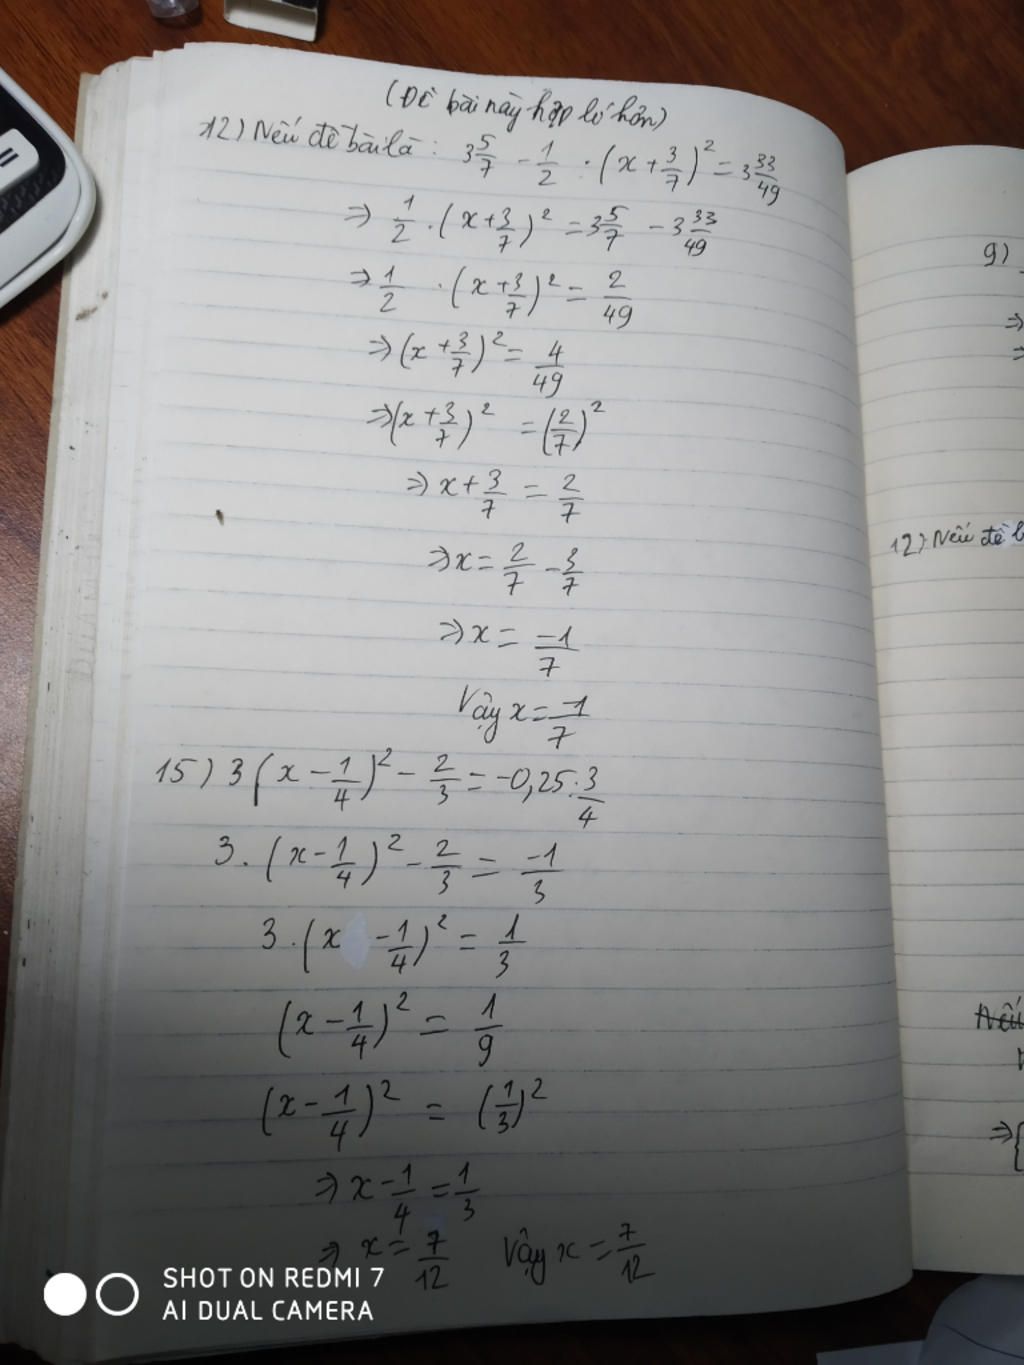 (Đề bài này hợp lí hơn)
12) Nếu đề bài là : 3 5/7 - 1/2 : (x + 3/7)² = 3 33/49
=> 1/2 . (x + 3/7)² = 3 5/7 - 3 33/49
=> 1/2 . (x + 3/7)² = 2/49
=> (x + 3/7)² = 4/49
=> (x + 3/7)² = (2/7)²
=> x + 3/7 = 2/7
=> x = 2/7 - 3/7
=> x = -1/7
Vậy x = -1/7
15) 3 (x - 1/4)² - 2/3 = -0,25 : 3/4
3 . (x - 1/4)² - 2/3 = -1/3
3 . (x - 1/4)² = 1/3
(x - 1/4)² = 1/9
(x - 1/4)² = (1/3)²
=> x - 1/4 = 1/3
=> x = 7/12 Vậy x = 7/12
9)
=>
=>
12) Nếu đề b
Nếu
=> {
SHOT ON REDMI 7
AI DUAL CAMERA